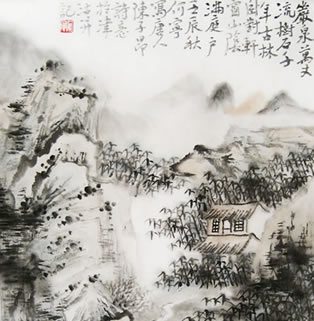 巖泉萬丈
流樹石千
年古林
臥對軒
窗山陰
滿庭户
壬辰秋
何寧
寫唐人
陳子昂
詩意
於津
沽並
記